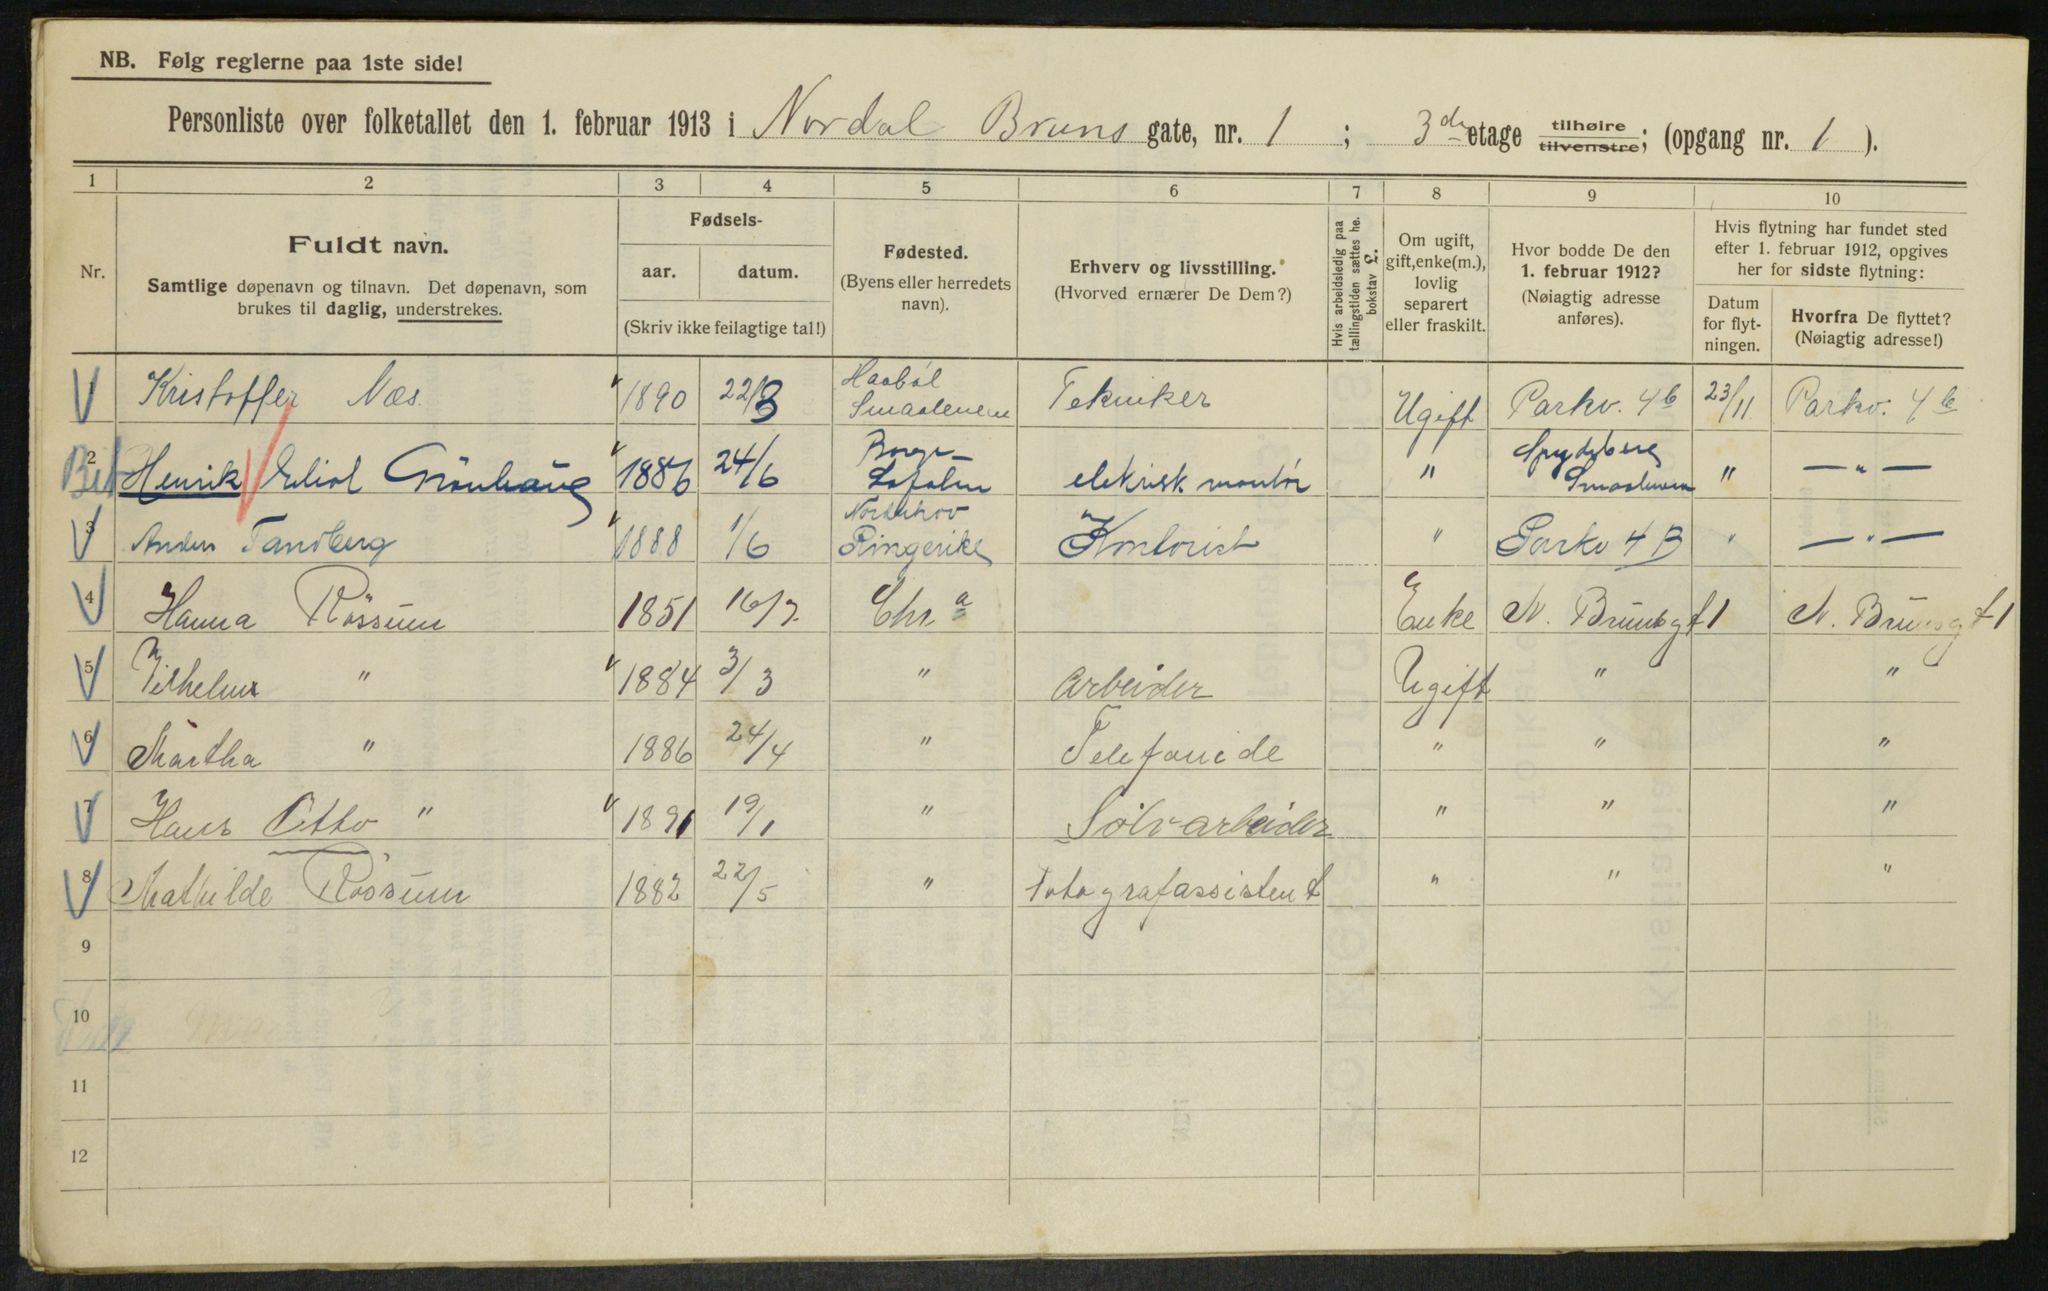 NB. Følg reglerne paa 1ste side!
Personliste over folketallet den 1. februar 1913 i Nordal Bruns gate, nr. 1 ; 3die etage tilhøire tilvenstre; (opgang nr. 1 ).
1 2 3 4 5 6 7 8 9 10
Nr.
Fuldt navn.
Samtlige døpenavn og tilnavn. Det døpenavn, som
brukes til daglig, understrekes.
Fødsels-
aar. datum.
(Skriv ikke feilagtige tal!)
Fødested.
(Byens eller herredets
navn).
Erhverv og livsstilling.
(Hvorved ernærer De Dem?)
Hvis arbeidsledig paa
tællingstiden sættes he.
bokstav £.
Om ugift,
gift, enke(m.),
lovlig
separert
eller fraskilt.
Hvor bodde De den
1. februar 1912?
(Nøiagtig adresse
anføres).
Hvis flytning har fundet sted
efter 1. februar 1912, opgives
her for sidste flytning:
Datum
for flyt-
ningen.
Hvorfra De flyttet?
(Nøiagtig adresse!)
1 Kristoffer Næs 1890 22/3 Haabøl Smaalenene Tekniker Ugift Parkv. 4b 23/11 Parkv. 4b
2 Henrik Grönhaug 1886 24/6 Borge Lofoten elektrisk montør " Spydeberg Smaalenene " — " —
3 Anders Tandberg 1888 1/6 Norderhov Ringerike Kontorist " Parkv 4 B " — " —
4 Hanna Rössum 1851 16/7 Chra Enke N. Brunsgt 1 N. Brunsgt 1
5 Vilhelm " 1884 3/3 " Arbeider Ugift " "
6 Martha " 1886 24/4 " Telefonide " " "
7 Hans Otto " 1891 19/1 " Sölvarbeider " " "
8 Mathilde Rössum 1882 22/5 " Fotografassistent " " "
9
10
11
12